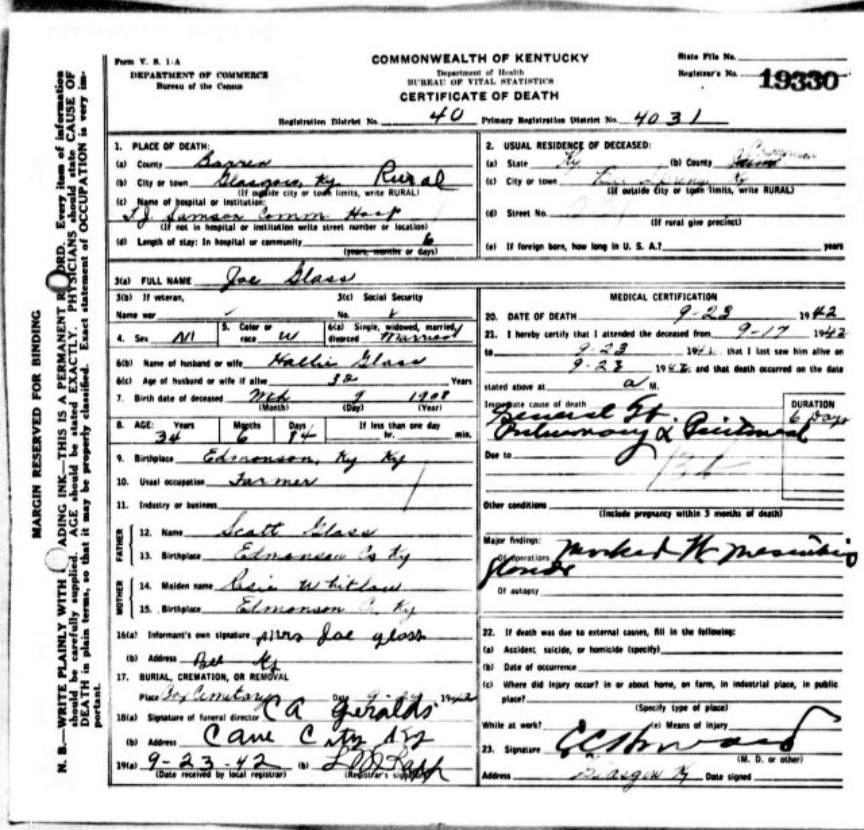 MARGIN RESERVED FOR BINDING
N. B.—WRITE PLAINLY WITH ADING INK—THIS IS A PERMANENT R ORD. Every item of information
should be carefully supplied. AGE should be stated EXACTLY. PHYSICIANS should state CAUSE OF
DEATH in plain terms, so that it may be properly classified. Exact statement of OCCUPATION is very im-
portant.
Form V. S. 1-A
DEPARTMENT OF COMMERCE
Bureau of the Census
COMMONWEALTH OF KENTUCKY
Department of Health
BUREAU OF VITAL STATISTICS
CERTIFICATE OF DEATH
State File No.
Registrar's No. 19330
Registration District No. 40 Primary Registration District No. 4031
1. PLACE OF DEATH:
(a) County Barren
(b) City or town Glasgow, Ky. Rural
(If outside city or town limits, write RURAL)
(c) Name of hospital or institution:
T.J. Samson Comm. Hosp
(If not in hospital or institution write street number or location)
(d) Length of stay: In hospital or community 6
(years, months or days)
2. USUAL RESIDENCE OF DECEASED:
(a) State Ky (b) County
(c) City or town Ky
(If outside city or town limits, write RURAL)
(d) Street No.
(If rural give precinct)
(e) If foreign born, how long in U. S. A.? years
3(a) FULL NAME Joe Glass
3(b) If veteran,
Name war
3(c) Social Security
No.
4. Sex M
5. Color or
race W
6(a) Single, widowed, married,
divorced Married
6(b) Name of husband or wife Hallie Glass
6(c) Age of husband or wife if alive Years
7. Birth date of deceased Mch 9 1908
(Month) (Day) (Year)
8. AGE: Years Months Days If less than one day
34 6 14 hr. min.
9. Birthplace Edmonson, Ky Ky
10. Usual occupation Farmer
11. Industry or business
FATHER
12. Name Scott Glass
13. Birthplace Edmonson Co Ky
MOTHER
14. Maiden name Whitlow
15. Birthplace Edmonson Co. Ky
16(a) Informant's own signature Mrs Joe Glass
(b) Address Bee Ky
17. BURIAL, CREMATION, OR REMOVAL
Place Cemetery Date 9- 1942
18(a) Signature of funeral director CA Geralds
(b) Address Cave City Ky
19(a) 9-23-42 (b)
(Date received by local registrar) (Registrar's signature)
MEDICAL CERTIFICATION
20. DATE OF DEATH 9-23 1942
21. I hereby certify that I attended the deceased from 9-17 1942
to 9-23 194 , that I last saw him alive on
9-23 1942, and that death occurred on the date
stated above at a M.
Immediate cause of death
DURATION
General
6 Days
Pulmonary &
Due to
Other conditions
(Include pregnancy within 3 months of death)
Major findings:
Of operations Marked
glands
Of autopsy
22. If death was due to external causes, fill in the following:
(a) Accident, suicide, or homicide (specify)
(b) Date of occurrence
(c) Where did injury occur? in or about home, on farm, in industrial place, in public
place?
(Specify type of place)
While at work? (e) Means of injury
23. Signature
(M. D. or other)
Address Glasgow Ky Date signed